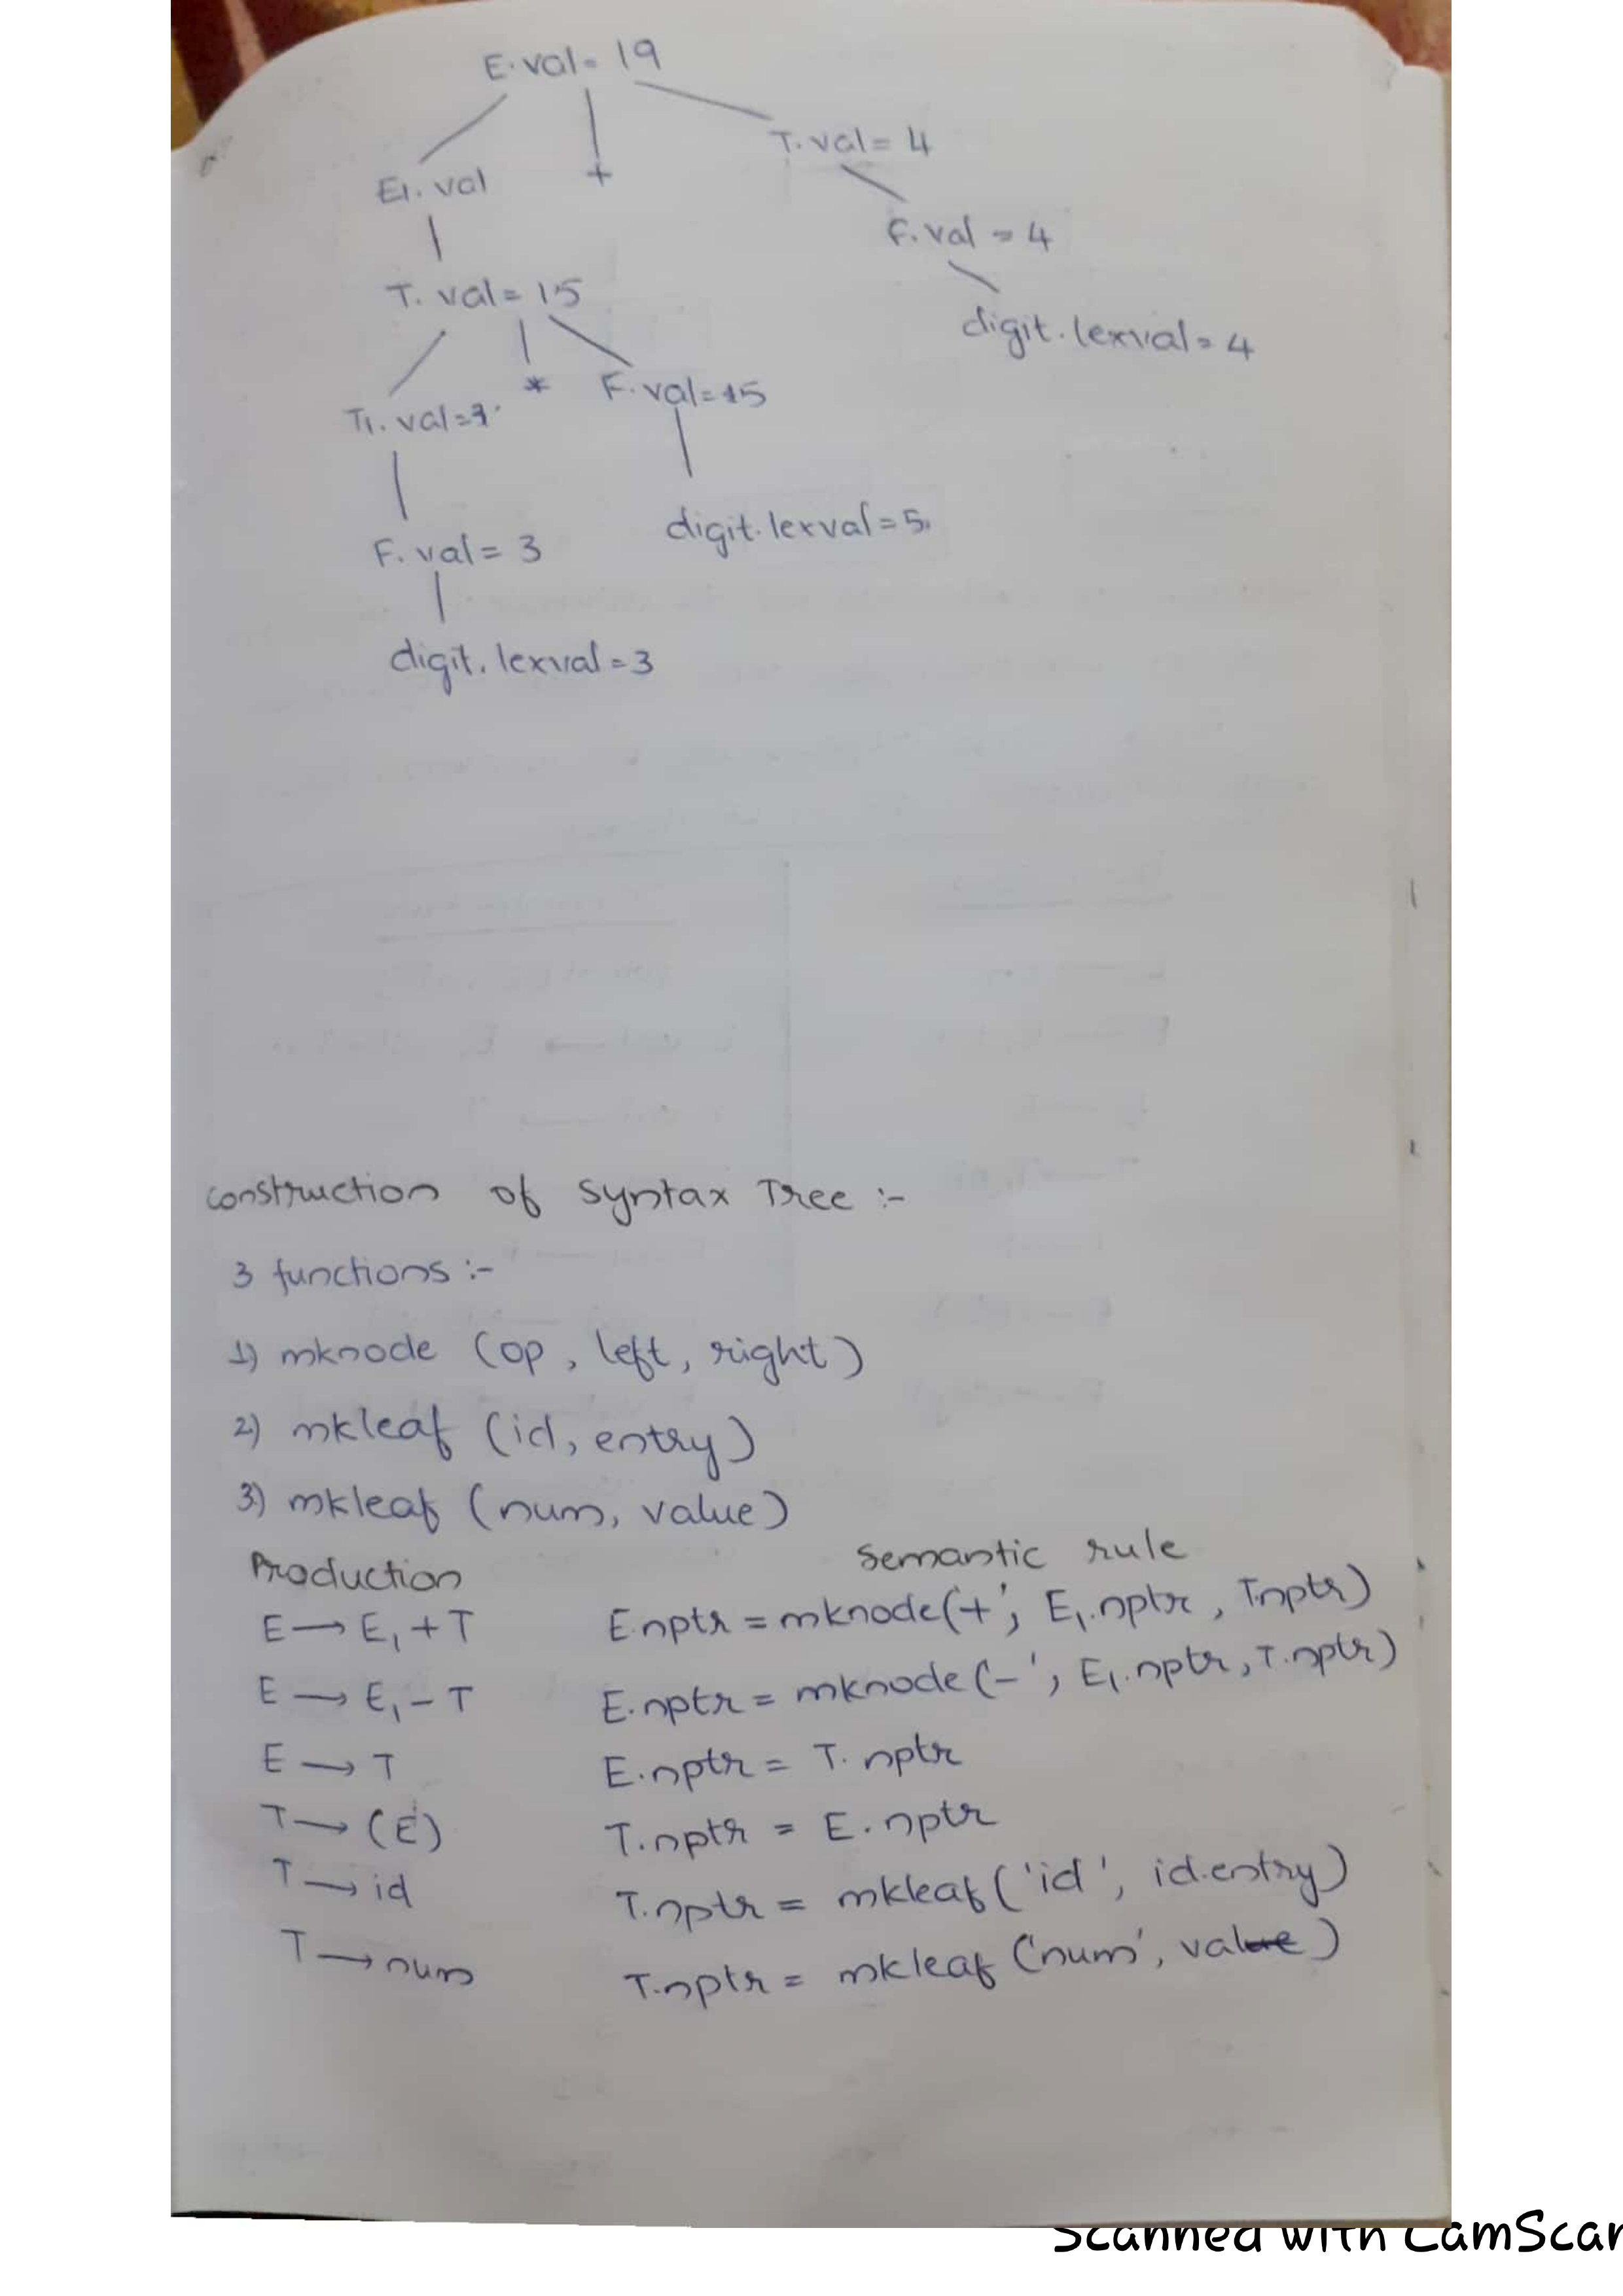 E.val = 19
T.val = 4
E1.val
+
F.val = 4
T.val = 15
digit.lexval = 4
T1.val =
*
F.val = 5
digit.lexval = 5
F.val = 3
digit.lexval = 3
construction of syntax Tree :-
3 functions :-
1) mknode (op, left, right)
2) mkleaf (id, entry)
3) mkleaf (num, value)
Production Semantic rule
E → E1 + T E.nptr = mknode('+', E1.nptr, T.nptr)
E → E1 - T E.nptr = mknode('-', E1.nptr, T.nptr)
E → T E.nptr = T.nptr
T → (E) T.nptr = E.nptr
T → id T.nptr = mkleaf('id', id.entry)
T → num T.nptr = mkleaf('num', val)
Scanned with CamScan